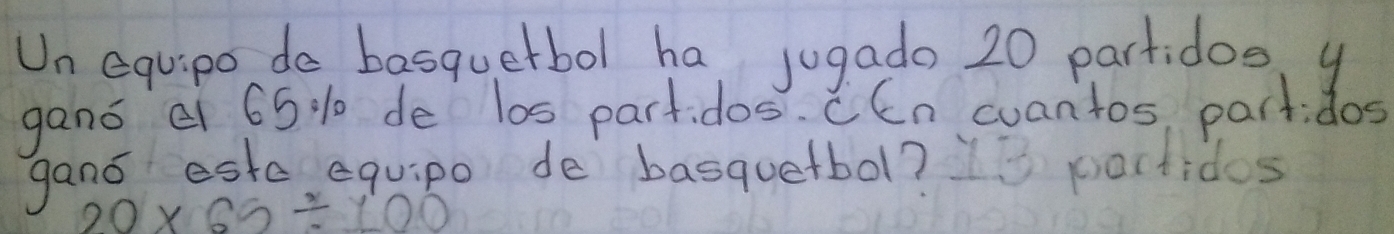 Un equipo de basquetbol ha jugado 20 partidos y
ganó el 65% de los partidos. ¿En cuantos partidos
ganó este equipo de basquetbol? 13 partidos
20 x 65 ÷ 100